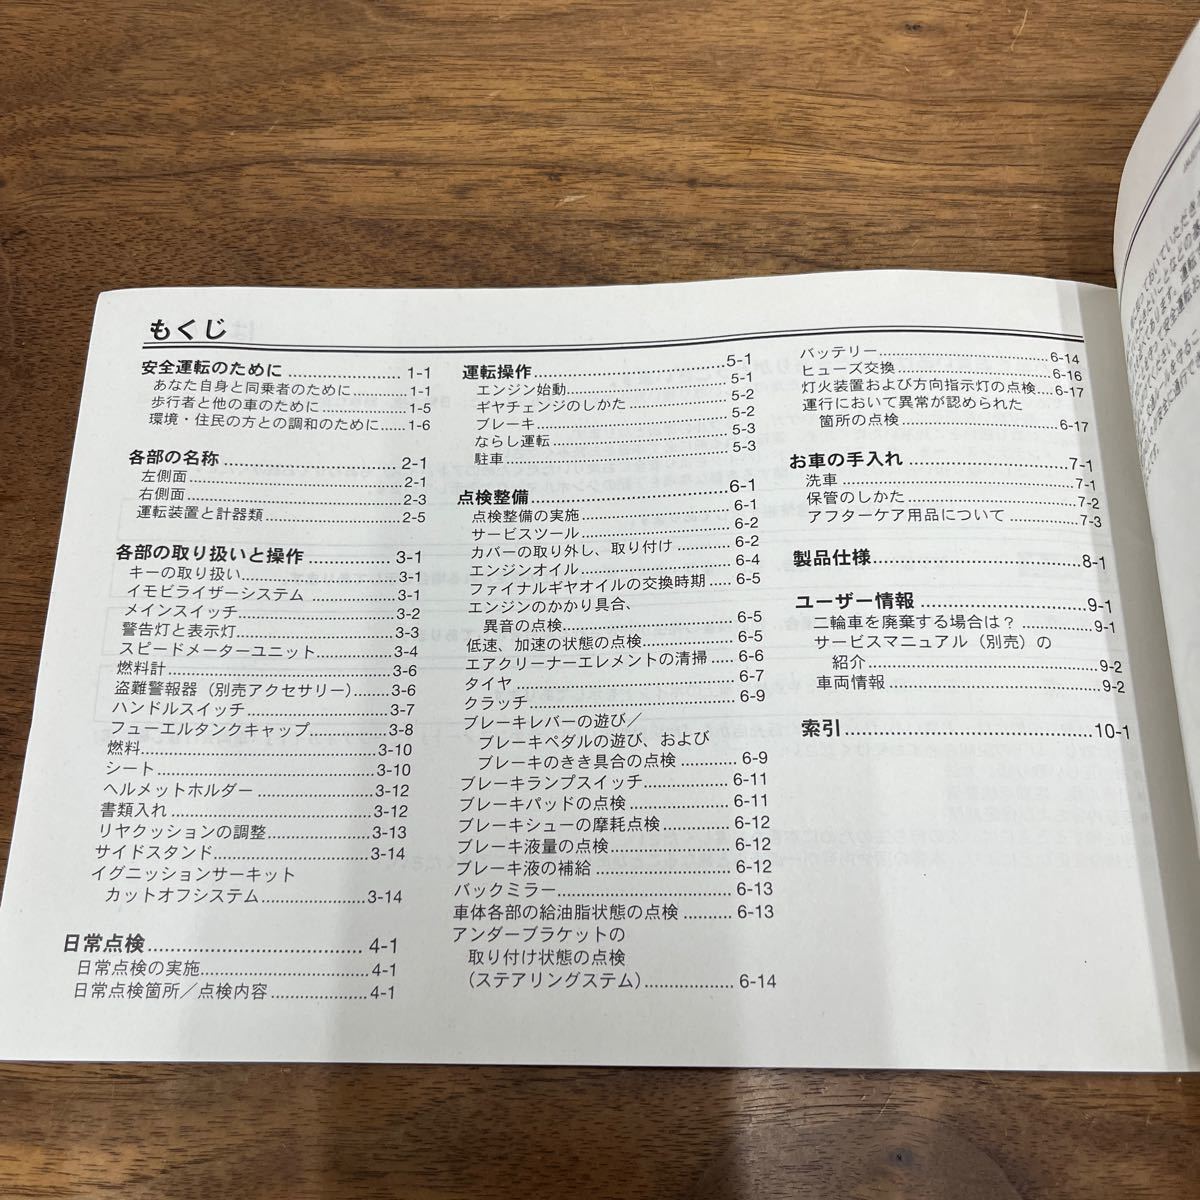 もくじ
安全運転のために ........ 1-1
あなた自身と同乗者のために ........ 1-1
歩行者と他の車のために ........ 1-5
環境・住民の方との調和のために ........ 1-6
各部の名称 ........ 2-1
左側面 ........ 2-1
右側面 ........ 2-3
運転装置と計器類 ........ 2-5
各部の取り扱いと操作 ........ 3-1
キーの取り扱い ........ 3-1
イモビライザーシステム ........ 3-1
メインスイッチ ........ 3-2
警告灯と表示灯 ........ 3-3
スピードメーターユニット ........ 3-4
燃料計 ........ 3-6
盗難警報器（別売アクセサリー） ........ 3-6
ハンドルスイッチ ........ 3-7
フューエルタンクキャップ ........ 3-8
燃料 ........ 3-10
シート ........ 3-10
ヘルメットホルダー ........ 3-12
書類入れ ........ 3-12
リヤクッションの調整 ........ 3-13
サイドスタンド ........ 3-14
イグニッションサーキット
カットオフシステム ........ 3-14
日常点検 ........ 4-1
日常点検の実施 ........ 4-1
日常点検箇所／点検内容 ........ 4-1
運転操作 ........ 5-1
エンジン始動 ........ 5-1
ギヤチェンジのしかた ........ 5-2
ブレーキ ........ 5-2
ならし運転 ........ 5-3
駐車 ........ 5-3
点検整備 ........ 6-1
点検整備の実施 ........ 6-1
サービスツール ........ 6-2
カバーの取り外し、取り付け ........ 6-2
エンジンオイル ........ 6-4
ファイナルギヤオイルの交換時期 ........ 6-5
エンジンのかかり具合、
異音の点検 ........ 6-5
低速、加速の状態の点検 ........ 6-5
エアクリーナーエレメントの清掃 ........ 6-6
タイヤ ........ 6-7
クラッチ ........ 6-9
ブレーキレバーの遊び／
ブレーキペダルの遊び、および
ブレーキのきき具合の点検 ........ 6-9
ブレーキランプスイッチ ........ 6-11
ブレーキパッドの点検 ........ 6-11
ブレーキシューの摩耗点検 ........ 6-12
ブレーキ液量の点検 ........ 6-12
ブレーキ液の補給 ........ 6-12
バックミラー ........ 6-13
車体各部の給油脂状態の点検 ........ 6-13
アンダーブラケットの
取り付け状態の点検
（ステアリングステム） ........ 6-14
バッテリー ........ 6-14
ヒューズ交換 ........ 6-16
灯火装置および方向指示灯の点検 ........ 6-17
運行において異常が認められた
箇所の点検 ........ 6-17
お車の手入れ ........ 7-1
洗車 ........ 7-1
保管のしかた ........ 7-2
アフターケア用品について ........ 7-3
製品仕様 ........ 8-1
ユーザー情報 ........ 9-1
二輪車を廃棄する場合は？ ........ 9-1
サービスマニュアル（別売）の
紹介 ........ 9-2
車両情報 ........ 9-2
索引 ........ 10-1